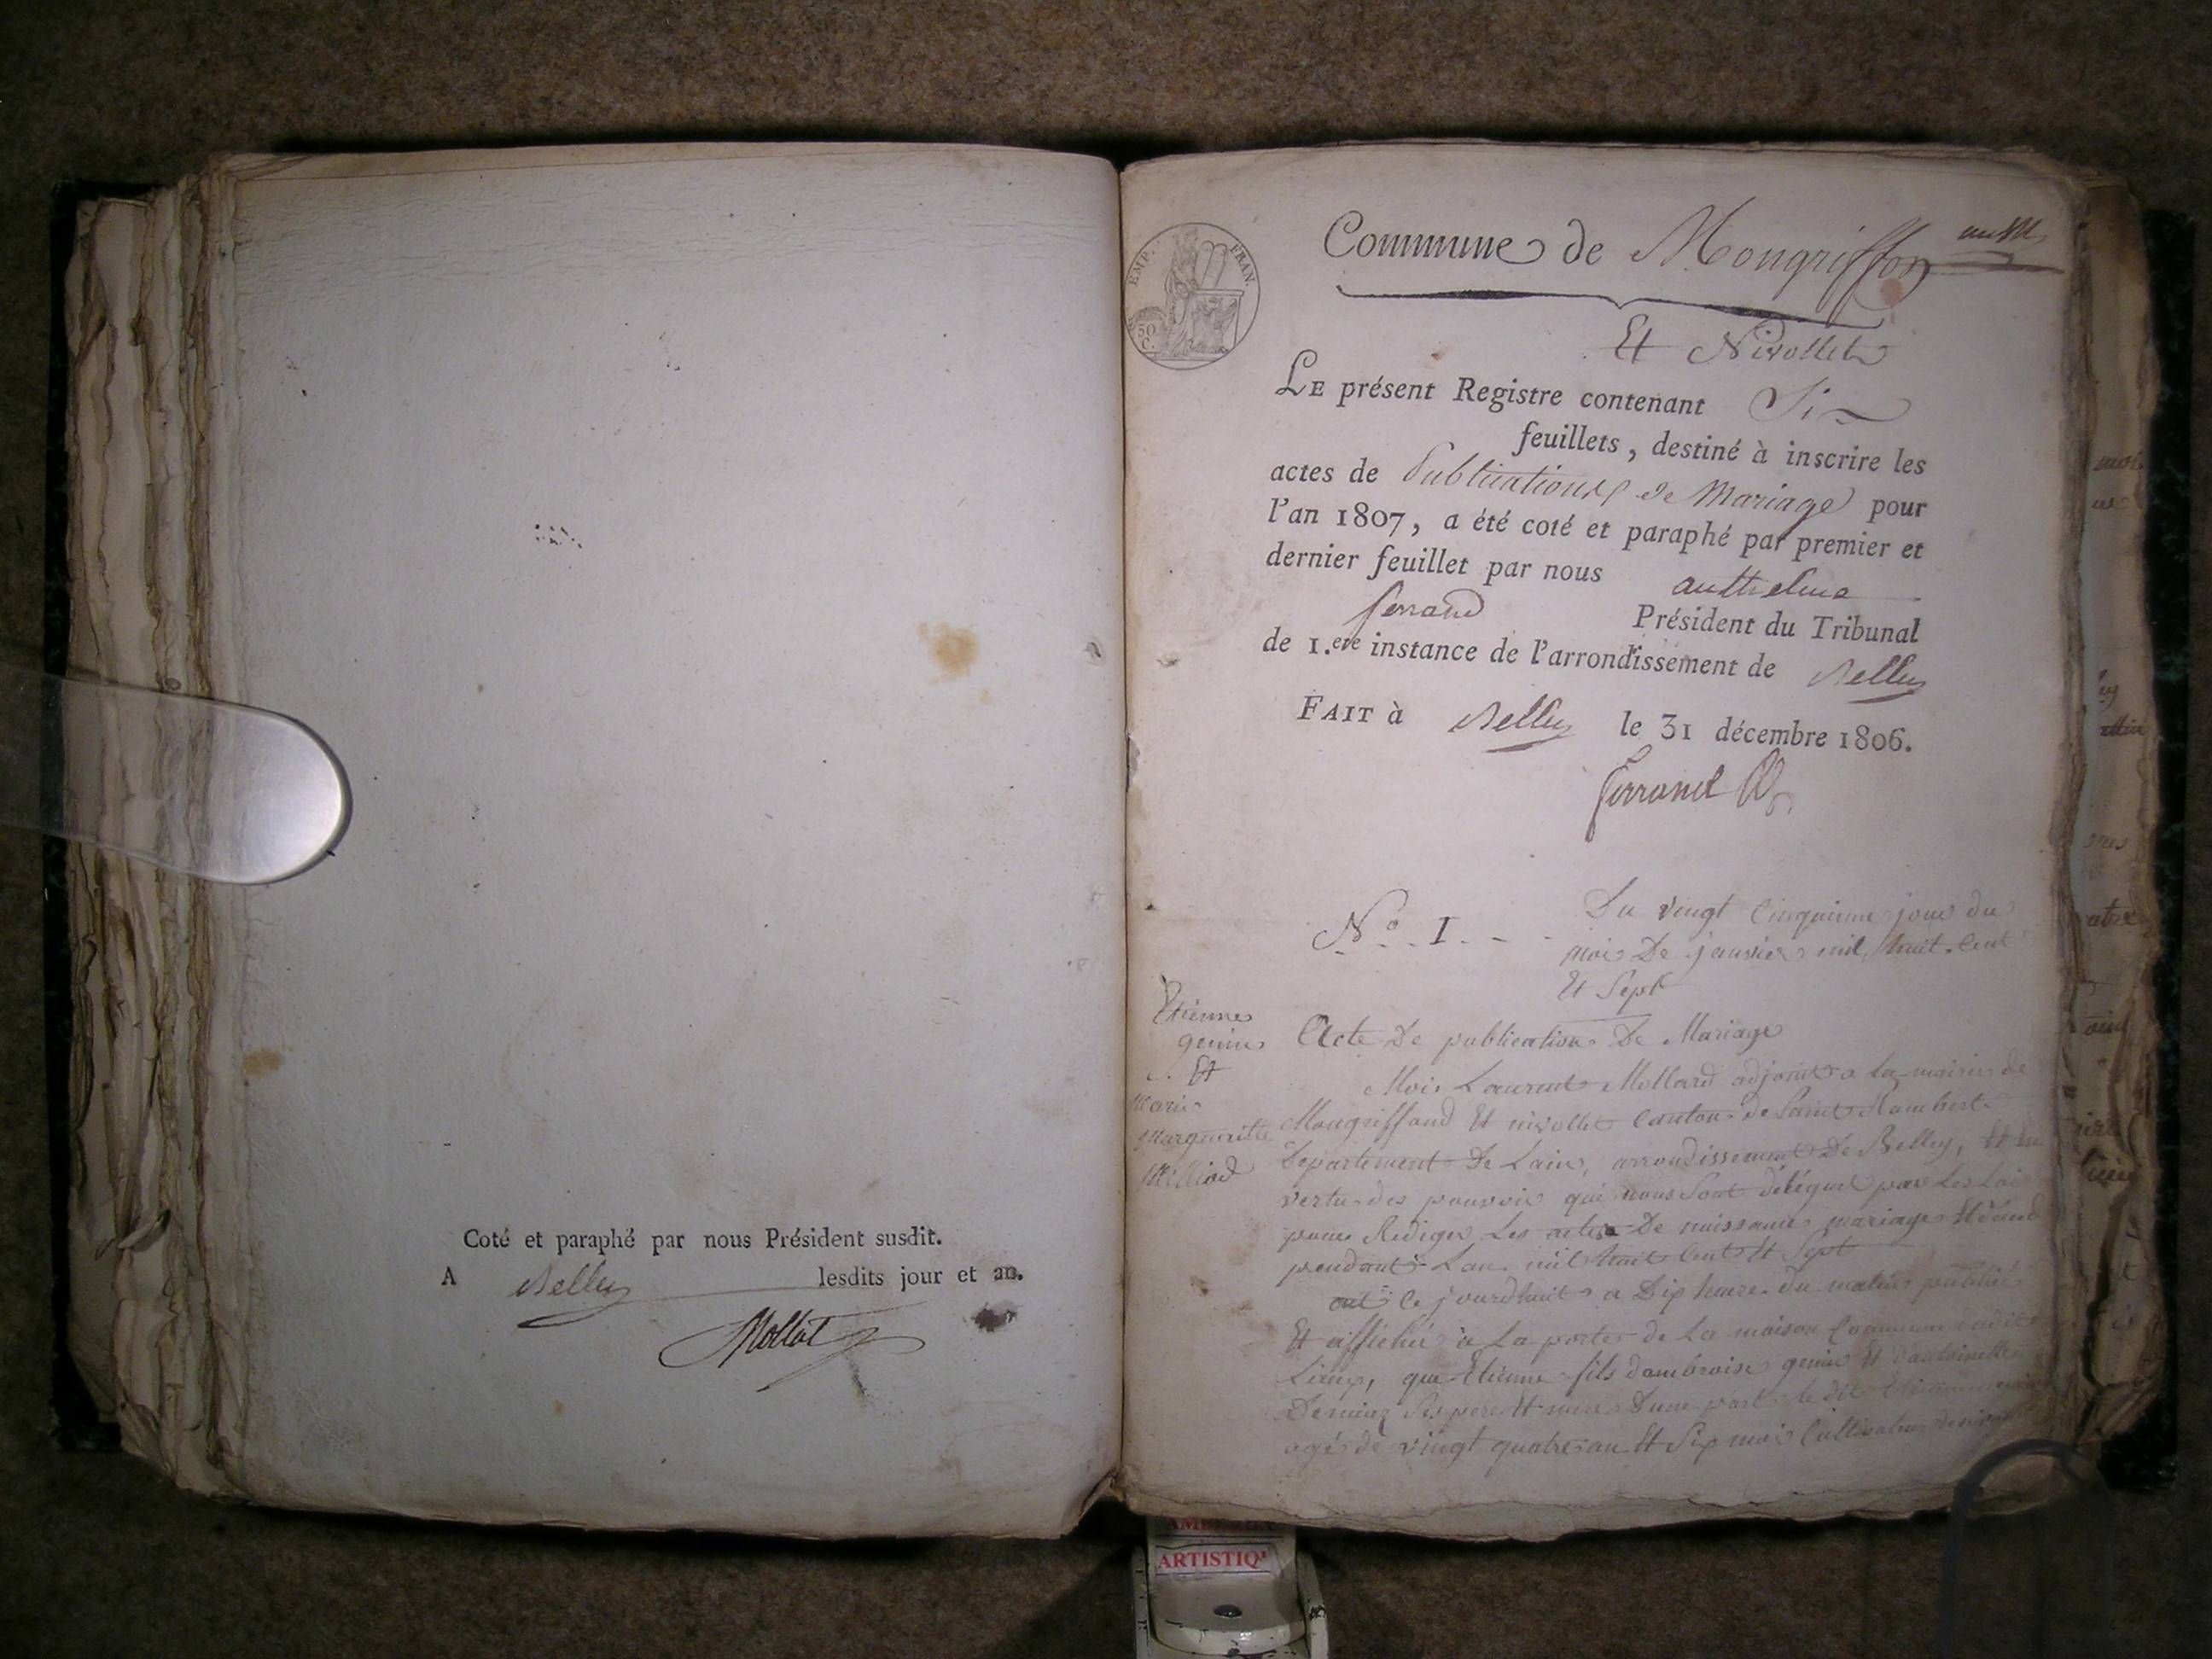 Coté et paraphé par nous Président susdit.
A Belley lesdits jour et an.
Mollot
EMP. FRAN.
50 C.
Commune de Mongriffon
Et Nivollet
LE présent Registre contenant Six
feuillets, destiné à inscrire les
actes de Publications de Mariage pour
l'an 1807, a été coté et paraphé par premier et
dernier feuillet par nous anthelme
ferrand Président du Tribunal
de 1.ere instance de l'arrondissement de Belley
FAIT à Belley le 31 décembre 1806.
ferrand
N.o 1. Du vingt cinquieme jour du
mois De janvier mil huit cent
Et Sept
Etienne
genin
Et
Marie
Margueritte
Milliod
Acte De publication De Mariage
Moi Laurent Mollard adjoint a la mairie de
Mongriffond Et nivollet Canton de Saint Rambert
Departement De Lain, arrondissement De Belley, Et En
vertu des pouvoir qui nous Sont délégué par Les Loi
pour Rediger Les actes De naissance mariage Et décé
pendant Lan mil huit Cent Et Sept
ont ce jourdhuit a Dix heure du matin publié
Et affiché a La porte de La maison Commune
Lieux, que Etienne fils dambroise genin Et dantoinette
Ses pere Et mere Dune part le dit Etienne
agé de vingt quatre an Et Six mois Cultivateur
ARTISTIQ